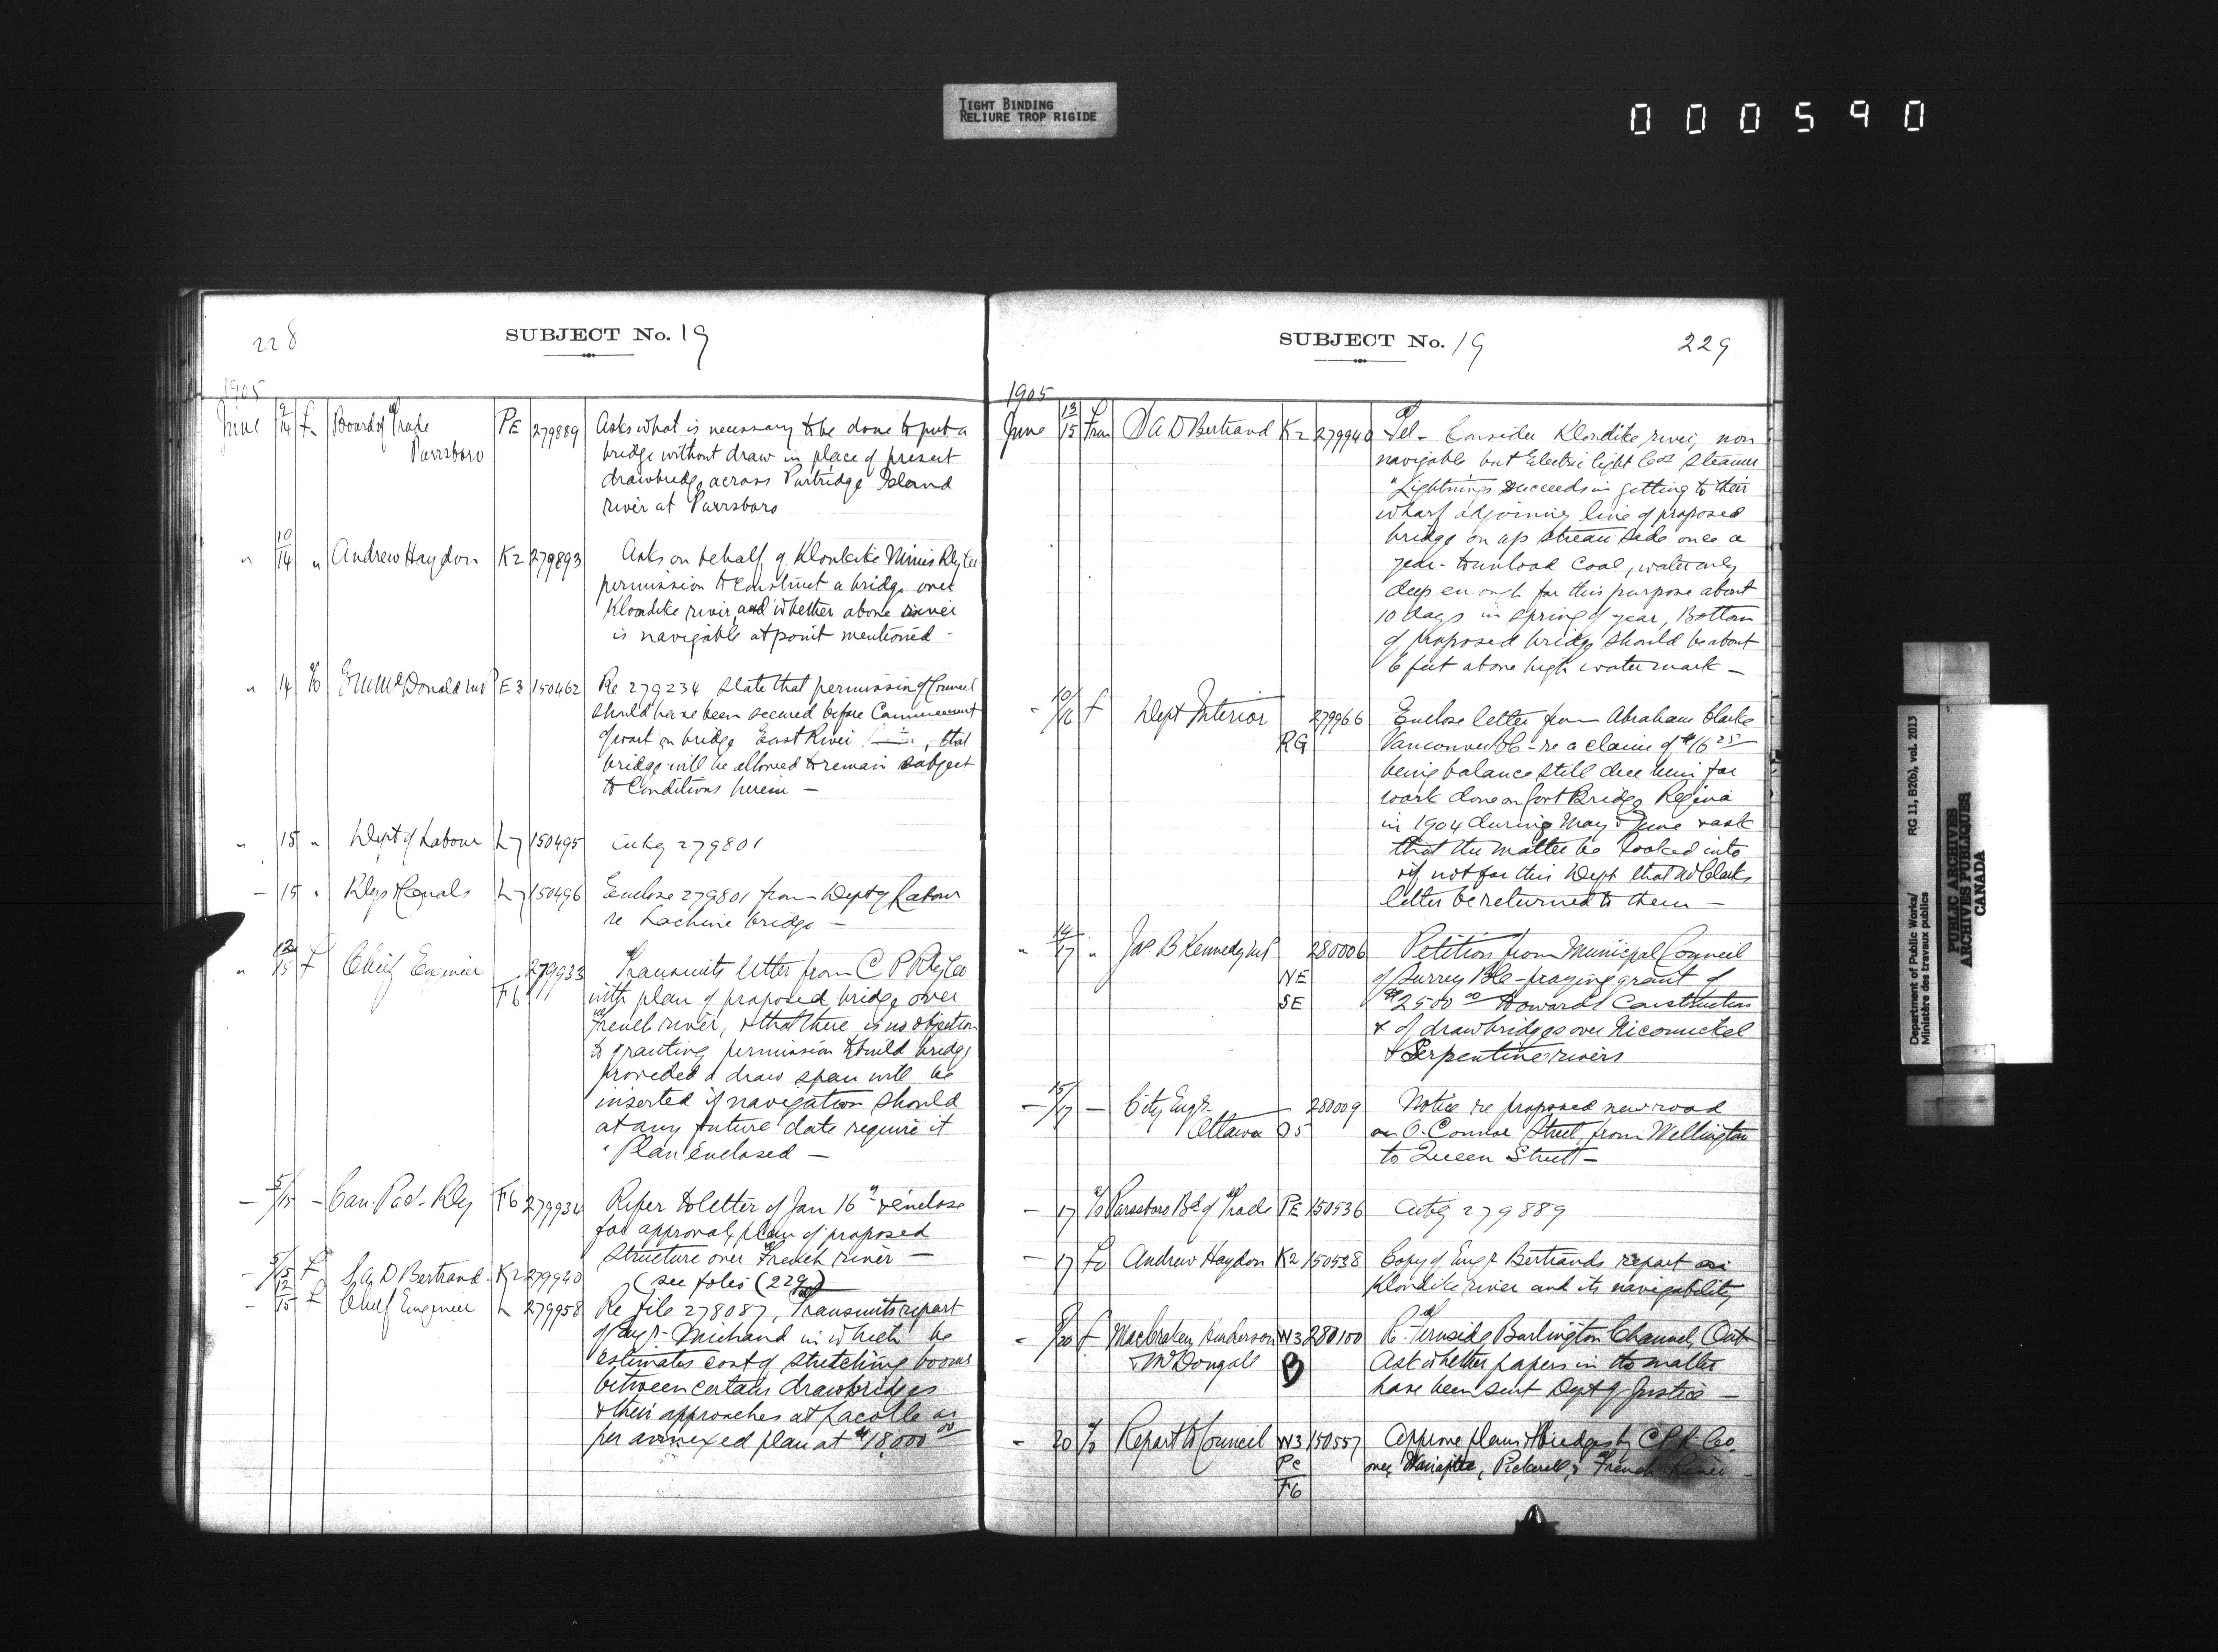 TIGHT BINDING
RELIURE TROP RIGIDE
000590
228
SUBJECT No. 19
1905
June 9/14 f. Board of Trade PE 279889 Asks what is necessary to be done to put a
Parrsboro bridge without draw in place of present
drawbridge across Partridge Island
river at Parrsboro
" 10/14 " Andrew Haydon K2 279893 Asks on behalf of Klondike Mines Rly Co
permission to construct a bridge over
Klondike river, and whether above river
is navigable at point mentioned -
" 14 to E M McDonald MP E3 150462 Re 279234 state that permission of Council
should have been secured before Commencement
of work on bridge East River , that
bridge will be allowed to remain subject
to Conditions herein —
" 15 " Dept of Labour L7 150495 Ackg 279801
— 15 " Rlys & Canals L7 150496 Enclose 279801 from Dept of Labour
re Lachine bridge —
" 12/15 f Chief Engineer F6 279933 Transmits letter from C P Rly Co
with plan of proposed bridge over
French river, & that there is no objection
to granting permission to build bridge
provided a draw span will be
inserted if navigation should
at any future date require it
" Plan Enclosed —
— 5/15 — Can. Pac. Rly F6 279934 Refer to letter of Jan 16th & enclose
for approval, plan of proposed
structure over French river —
- 5/15 f S. A. D Bertrand - K2 279940 (see folio (229)
- 12/15 f Chief Engineer L 279958 Re file 278087, Transmits report
of Engr. Michaud in which he
estimates cost of stretching booms
between certain drawbridges
& their approaches at Lacolle as
per annexed plan at $18,000 00
SUBJECT No. 19
229
1905
June 13/15 from S A D Bertrand K2 279940 Tel - Consider Klondike river, non
navigable but Electric light Cos steamer
"Lightning" succeeds in getting to their
wharf adjoining line of proposed
bridge on up stream side once a
year - to unload Coal, water only
deep enough for this purpose about
10 days in spring of year, Bottom
of proposed bridge should be about
6 feet above high water mark —
- 10/16 f Dept Interior RG 279966 Enclose letter from Abraham Clarke
Vancouver BC - re a claim of $16 25
being balance still due him for
work done on foot Bridge Regina
in 1904 during May & June & ask
that the matter be looked into
& if not for this Dept that Mr Clarks
letter be returned to them —
" 14/17 " Jas. B Kennedy MP NE SE 280006 Petition from Municipal Council
of Surrey B.C. - praying grant of
$2500 00 towards Construction
& of drawbridges over Nicomekel
& Serpentine rivers
— 15/17 — City Engr. — 280009 Notice re proposed new road
Ottawa O5 on O'Connor Street, from Wellington
to Queen Street —
— 17 to Parrsboro Bd of Trade PE 150536 Ackg 279889
— 17 to Andrew Haydon K2 150538 Copy of Engr Bertrands report on
Klondike river and its navigability
- /20 f MacCraken, Henderson N3 280100 R. Fernside Burlington Channel, Ont
& McDougall B Ask whether papers in the matter
have been sent Dept of Justice —
- 20 to Report to Council N3 150557 Approve plans of bridges by C P R Co
Pc over Wanapitei, Pickerell, & French River —
F6
Department of Public Works/ RG 11, B2(b), vol. 2013
Ministère des travaux publics
PUBLIC ARCHIVES
ARCHIVES PUBLIQUES
CANADA